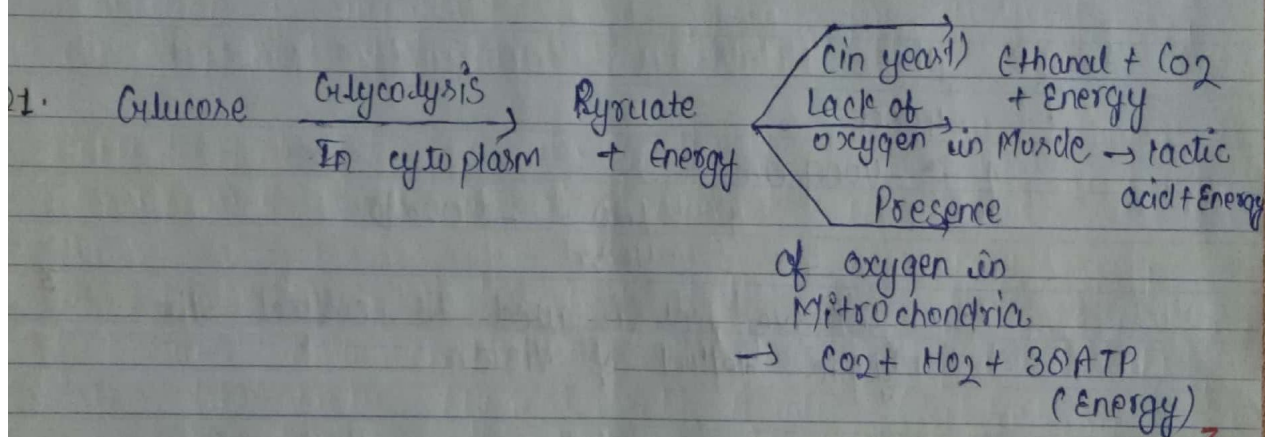 21. Glucose Glycolysis In cytoplasm Pyruate + Energy
(in yeast) Ethanal + CO2 + Energy
Lack of oxygen in Muscle → ractic acid + Energy
Presence of oxygen in
Mitrochondria
→ CO2 + HO2 + 38ATP
(Energy)